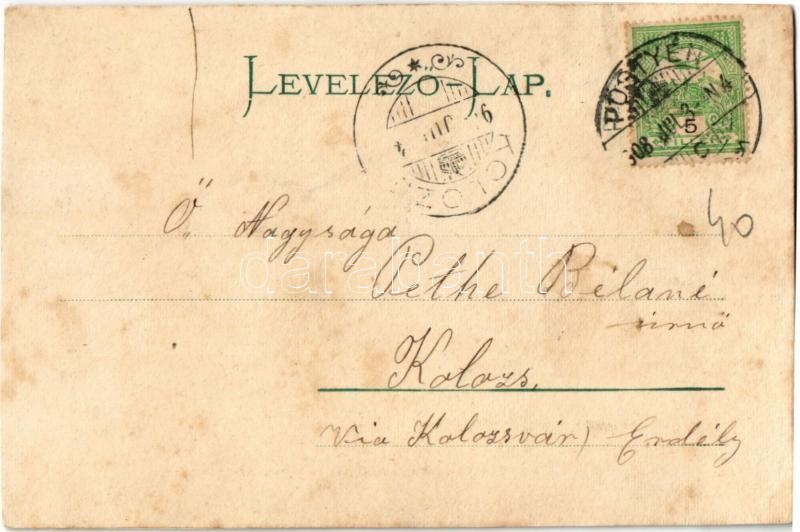 LEVELEZŐ LAP.
PÖSTYÉN
5
908
KOLOZ
9
40
Ő Nagysága
Pethe Béláné
úrnő
Kolozs,
Via Kolozsvár) Erdély
darabanth